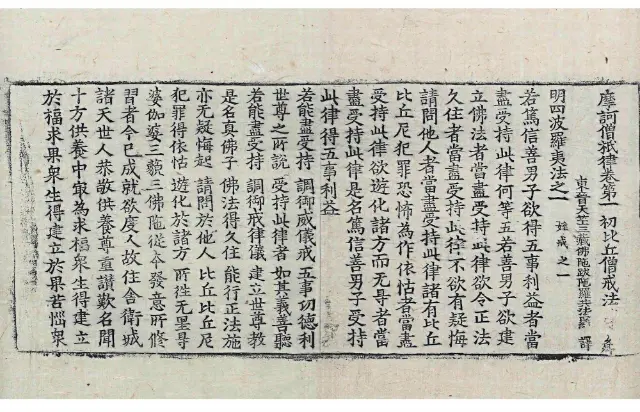 摩訶僧祇律卷第一 初比丘僧戒法
東晉天竺三藏佛陀跋陀羅共法顯 譯
明四波羅夷法之一 婬戒之一
若篤信善男子欲得五事利益者當
盡受持此律何等五若善男子欲建
立佛法者當盡受持此律欲令正法
久住者當盡受持此律不欲有疑悔
請問他人者當盡受持此律諸有比丘
比丘尼犯罪恐怖為作依怙者當盡
受持此律欲遊化諸方而无㝵者當
盡受持此律是名篤信善男子受持
此律得五事利益
若能盡受持 調御威儀戒 五事功德利
世尊之所說 受持此律者 如其義善聽
若能盡受持 調御戒律儀 建立世尊教
是名真佛子 佛法得久住 能行正法施
亦无疑悔起 請問於他人 比丘比丘尼
犯罪得依怙 遊化於諸方 所徃无罣㝵
婆伽婆三藐三佛陁從本發意所修
習者今已成就欲度人故住舍衛城
諸天世人恭敬供養尊重讃歎名聞
十方供養中冣為求福衆生得建立
於福求果衆生得建立於果苦惱衆